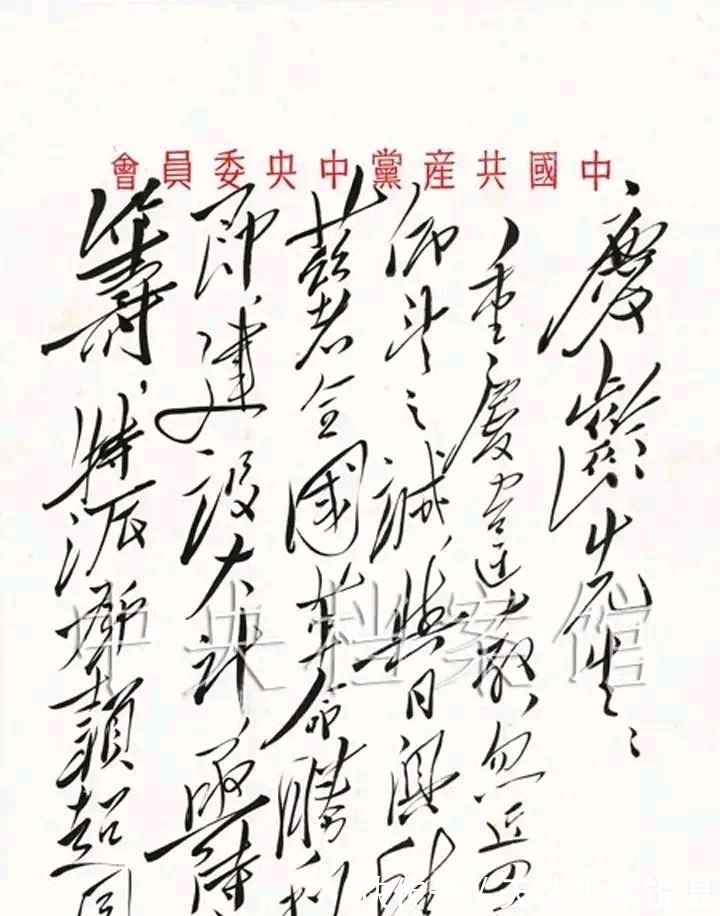 中國共產黨中央委員會
慶齡先生：
重慶違教，忽近四
仰望之誠，與日俱積
茲者全國革命勝利
即，建設大計，亟待
籌，特派鄧穎超同
中央档案馆
快传号 / 天才少年锐温